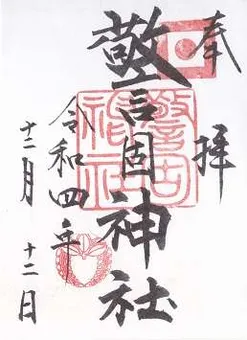 奉拝
警固神社
警固
神社
令和四年
十二月
十二日